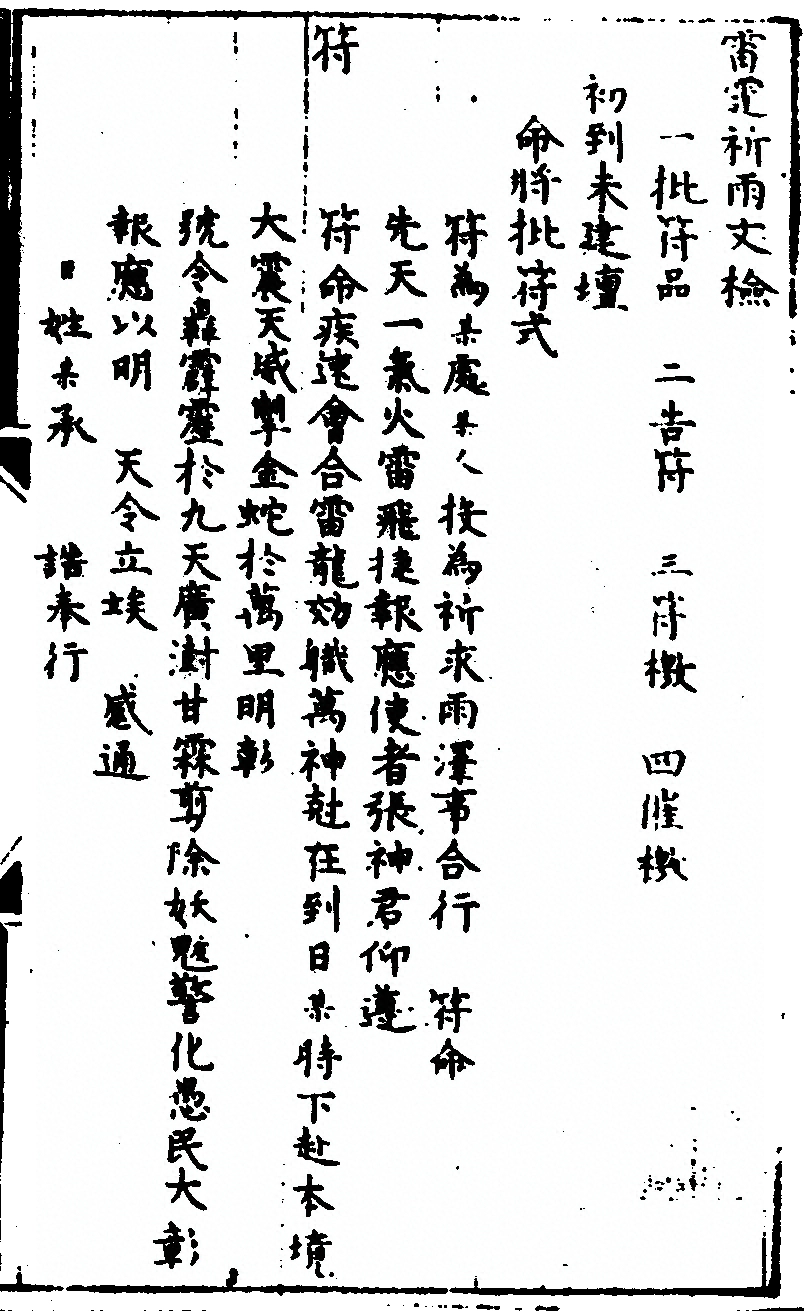 雷霆祈雨文檢
一批符品　二告符　三符檄　四催檄
初到未建壇
命將批符式
符為某處某人投為祈求雨澤事合行　符命
先天一氣火雷飛捷報應使者張神君仰遵
符
符命疾速會合雷龍効職萬神赴在到日某時下赴本境
大震天威掣金蛇於萬里明彰
號令轟霹靂於九天廣澍甘霖剪除妖魃警化愚民大彰
報應以明　天令立竢　感通
日姓某承　誥奉行